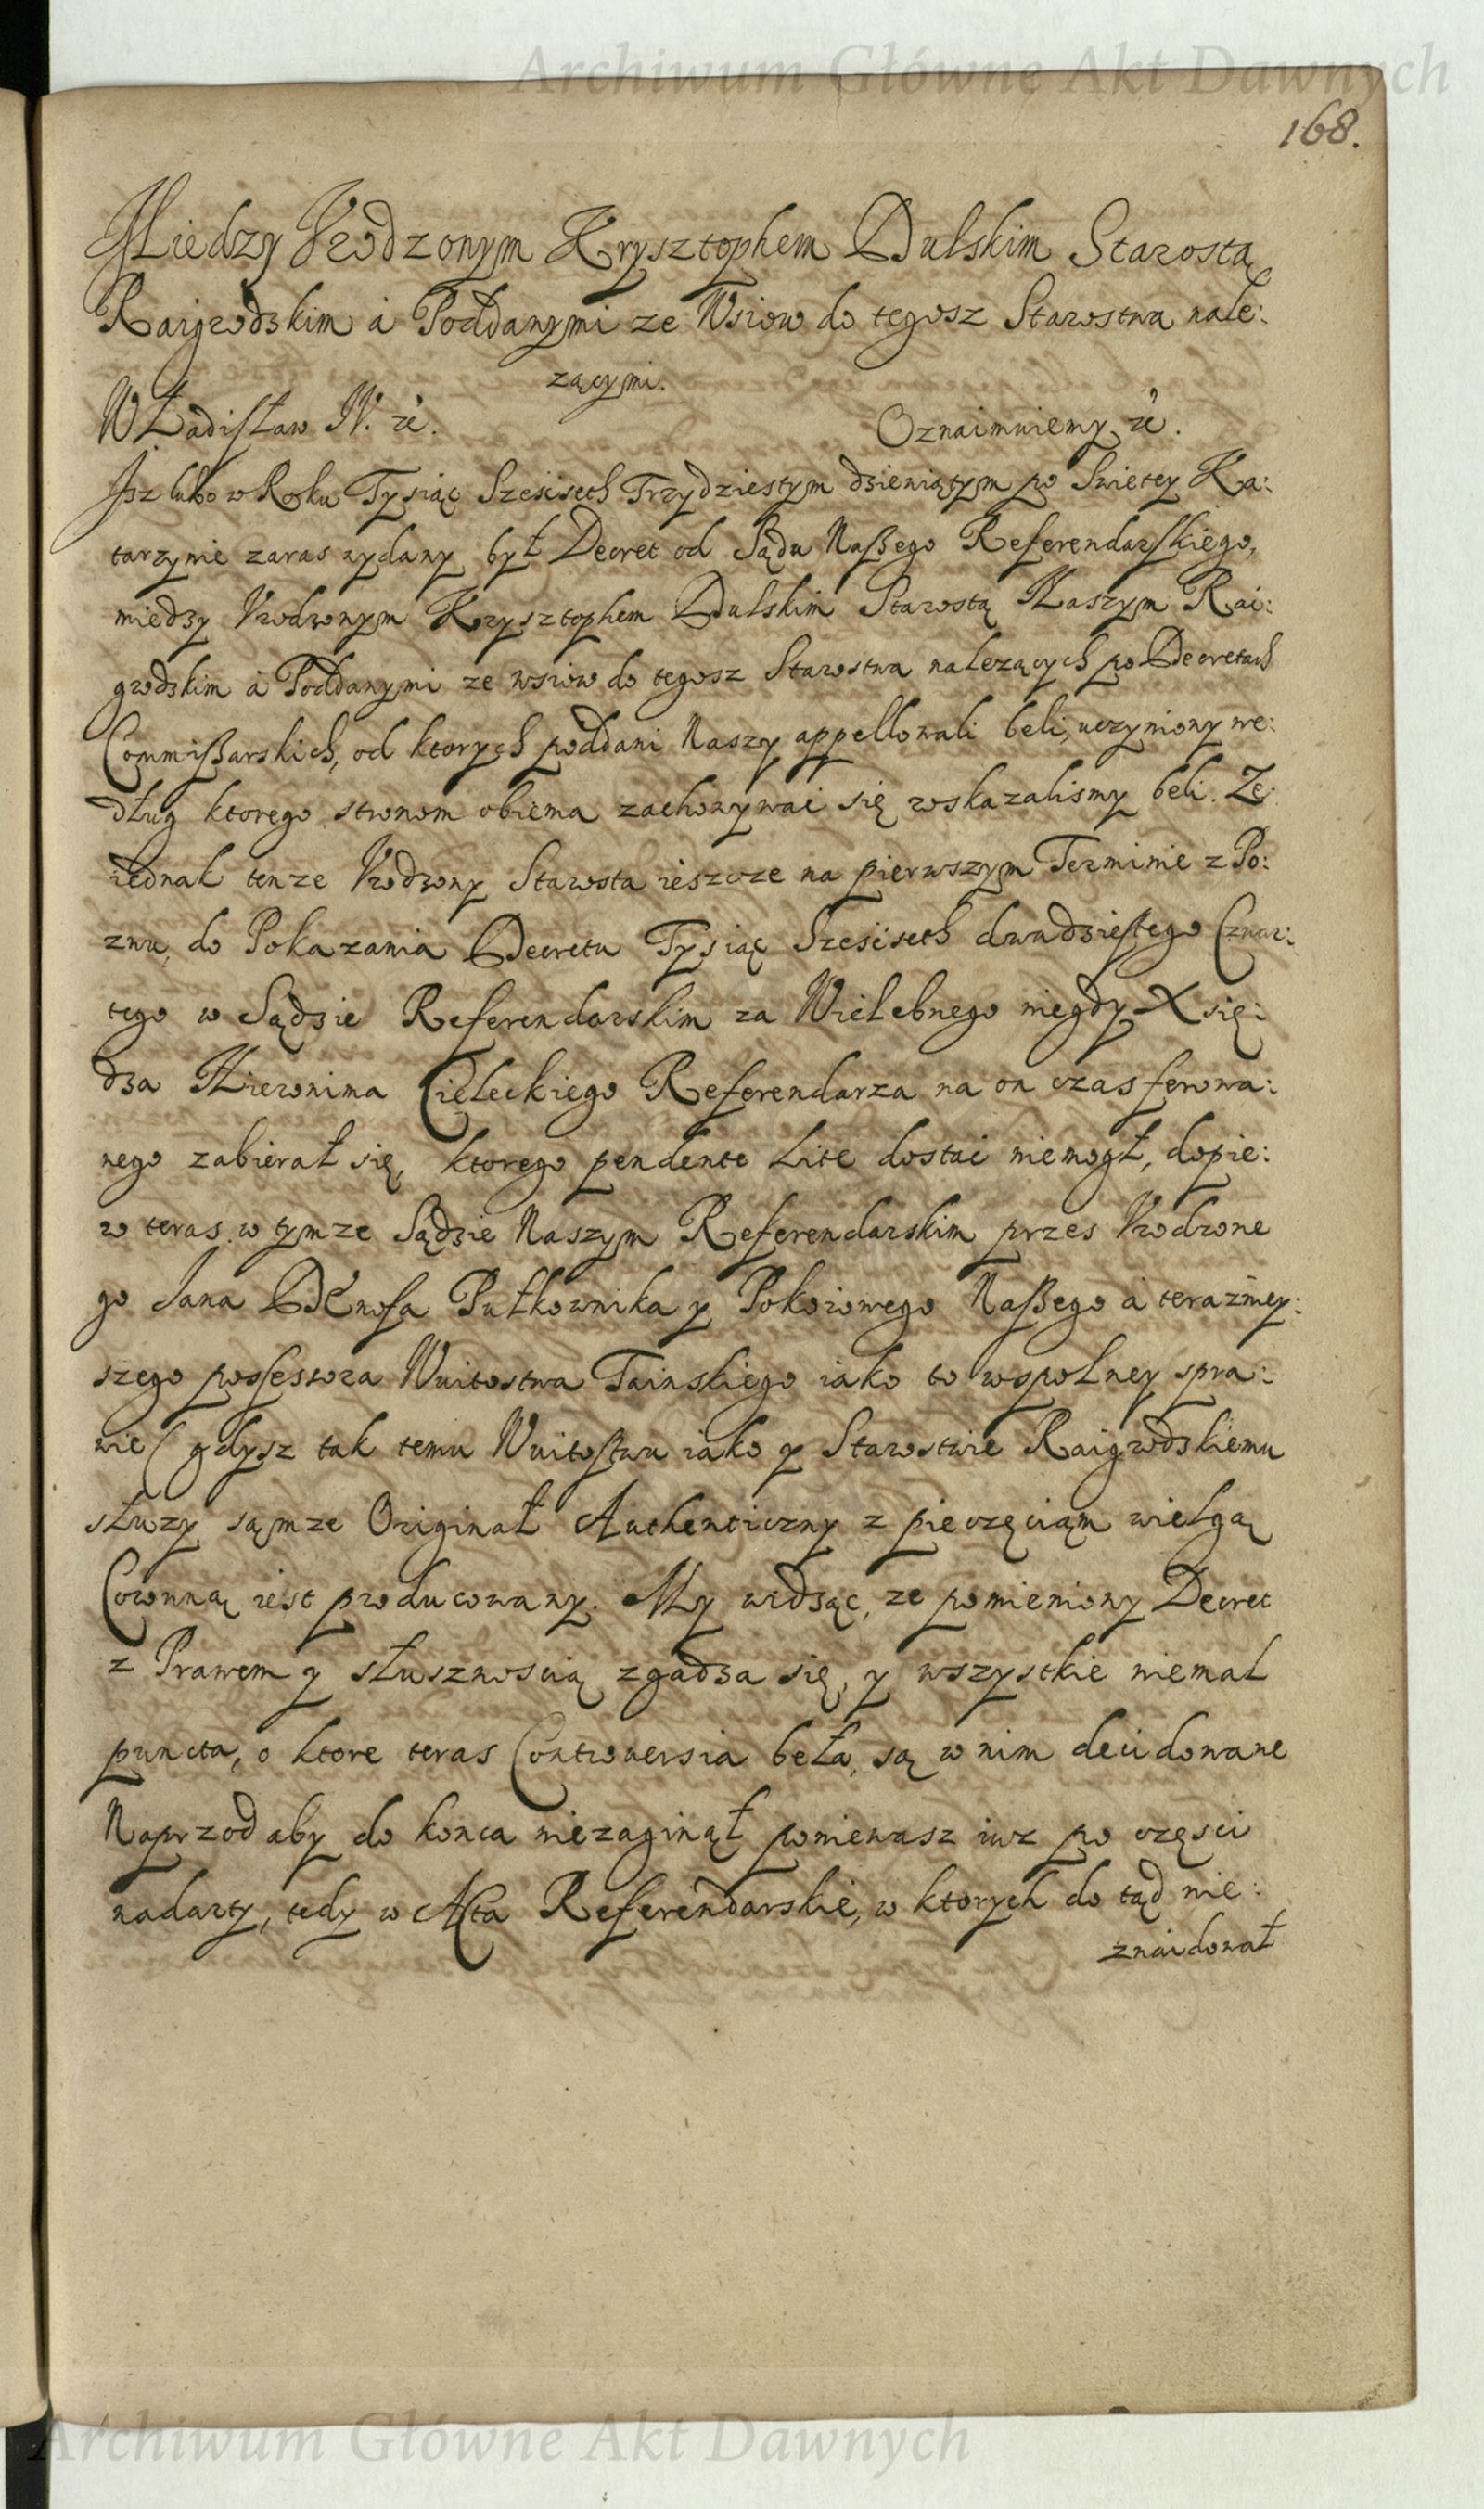 Archiwum Główne Akt Dawnych
168.
Miedzy Vrodzonym Krysztophem Dulskim Starostą
Raigrodzkim á Poddanymi ze Wsiow do tegosz Starostwa nale:
zącymi.
Władisław IV. etc. Oznaimuiemy, etc.
Isz lubo w Roku Tysiąc Szescseth Trzydziestym dziewiątym po Swietey Ka:
tarzynie zaras wydany był Decret od Sądu Naszego Referendarskiego,
miedzy Vrodzonym Krzysztophem Dulskim Starostą Naszym Rai:
grodzkim á Poddanymi ze wsiow do tegosz Starostwa nalezących po Decretach
Commissarskich, od ktorych poddani Naszy appellowali beli, uczyniony we:
dług ktorego stronom obiema zachowywać się roskazalismy beli. Ze
iednak tenze Vrodzony Starosta ieszcze na pierwszym Terminie z Po:
zwu, do Pokazania Decretu Tysiąc Szescseth dwudziestego Czwar:
tego w Sądzie Referendarskim za Wielebnego niegdy Xsię:
dza Hieronima Cieleckiego Referendarza na on czas ferowa:
nego zabierał się, ktorego pendente Lite dostać niemogł, dopie:
ro teras w tymze Sądzie Naszym Referendarskim przes Vrodzone
go Jana DEnofa Pułkownika y Pokoiowego Naszego á teraznieÿ:
szego possessora Wuitostwa Tainskiego iako to wspolney spra:
wie (gdysz tak temu Wuitostwu iako y Starostwie Raigrodzkiemu
słuzy sąmze Originał Authenticzny z pieczęciąm wielgą
Coronną iest producowany. My widząc, ze pomieniony Decret
z Prawem y słusznoscią zgadza się, y wszystkie niemal
puncta, o ktore teras Controversia beła, są w nim decidowane
Naprzod aby do konca niezaginął poniewasz iuz po części
nadarty, tedy w Acta Referendarskie, w ktorych do tąd nie:
znaidował
Archiwum Główne Akt Dawnych